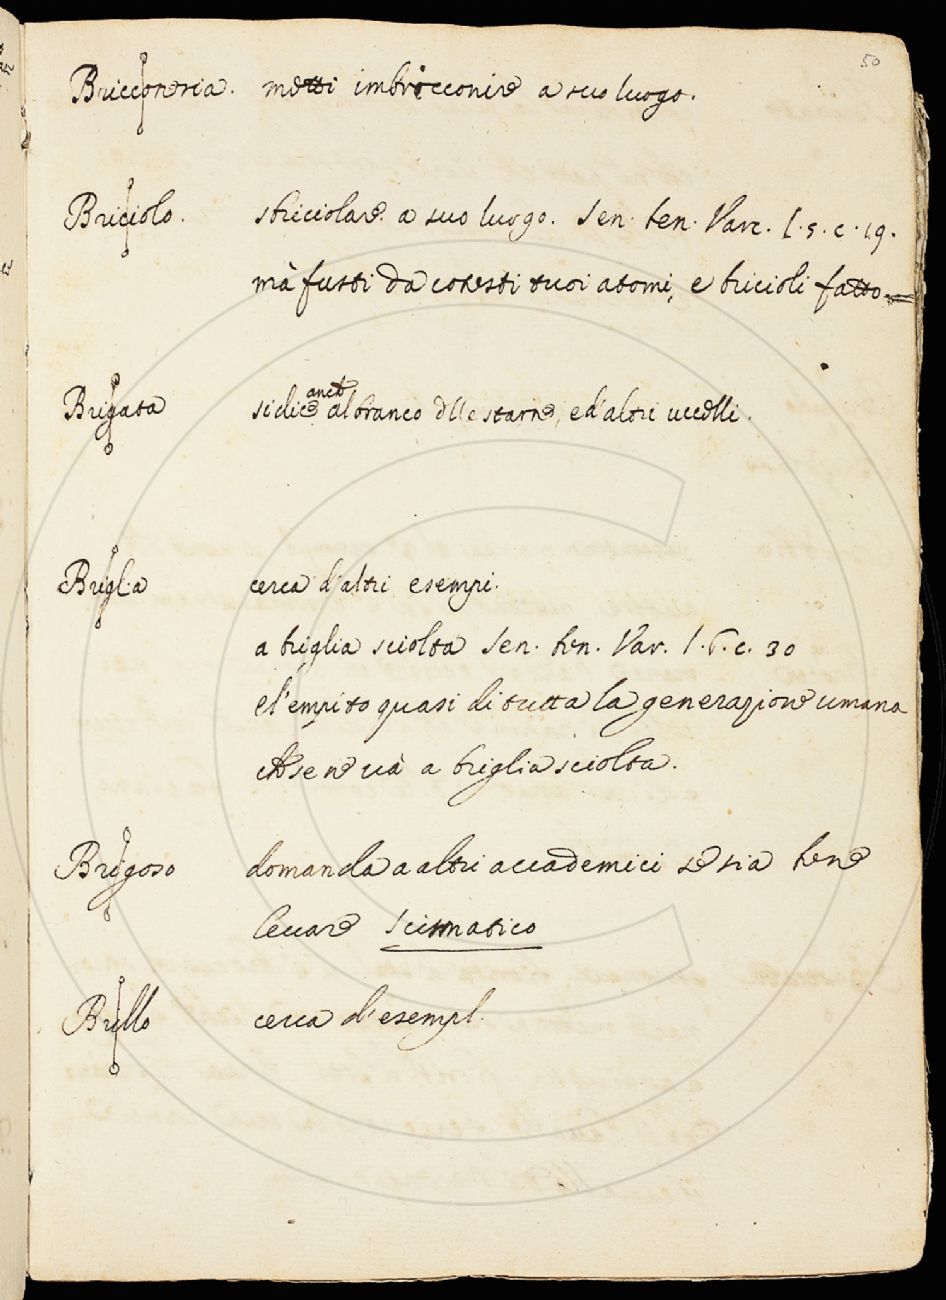 50
Bricconeria. metti imbricconire a suo luogo.
Briciolo. sbriciolare a suo luogo. Sen. ben. Varc. l. 5. c. 19.
mà fusti da cotesti tuoi atomi, e bricioli fatto.
Brigata si dice anche al branco dlle starne, e d'altri uccelli.
Briglia cerca d'altri esempi.
a briglia sciolta Sen. ben. Var. l. 6. c. 30
e l'empito quasi di tutta la generazione umana
che se ne và a briglia sciolta.
Brigoso domanda a altri accademici se sia bene
levare Scismatico
Brillo cerca d'esempl.